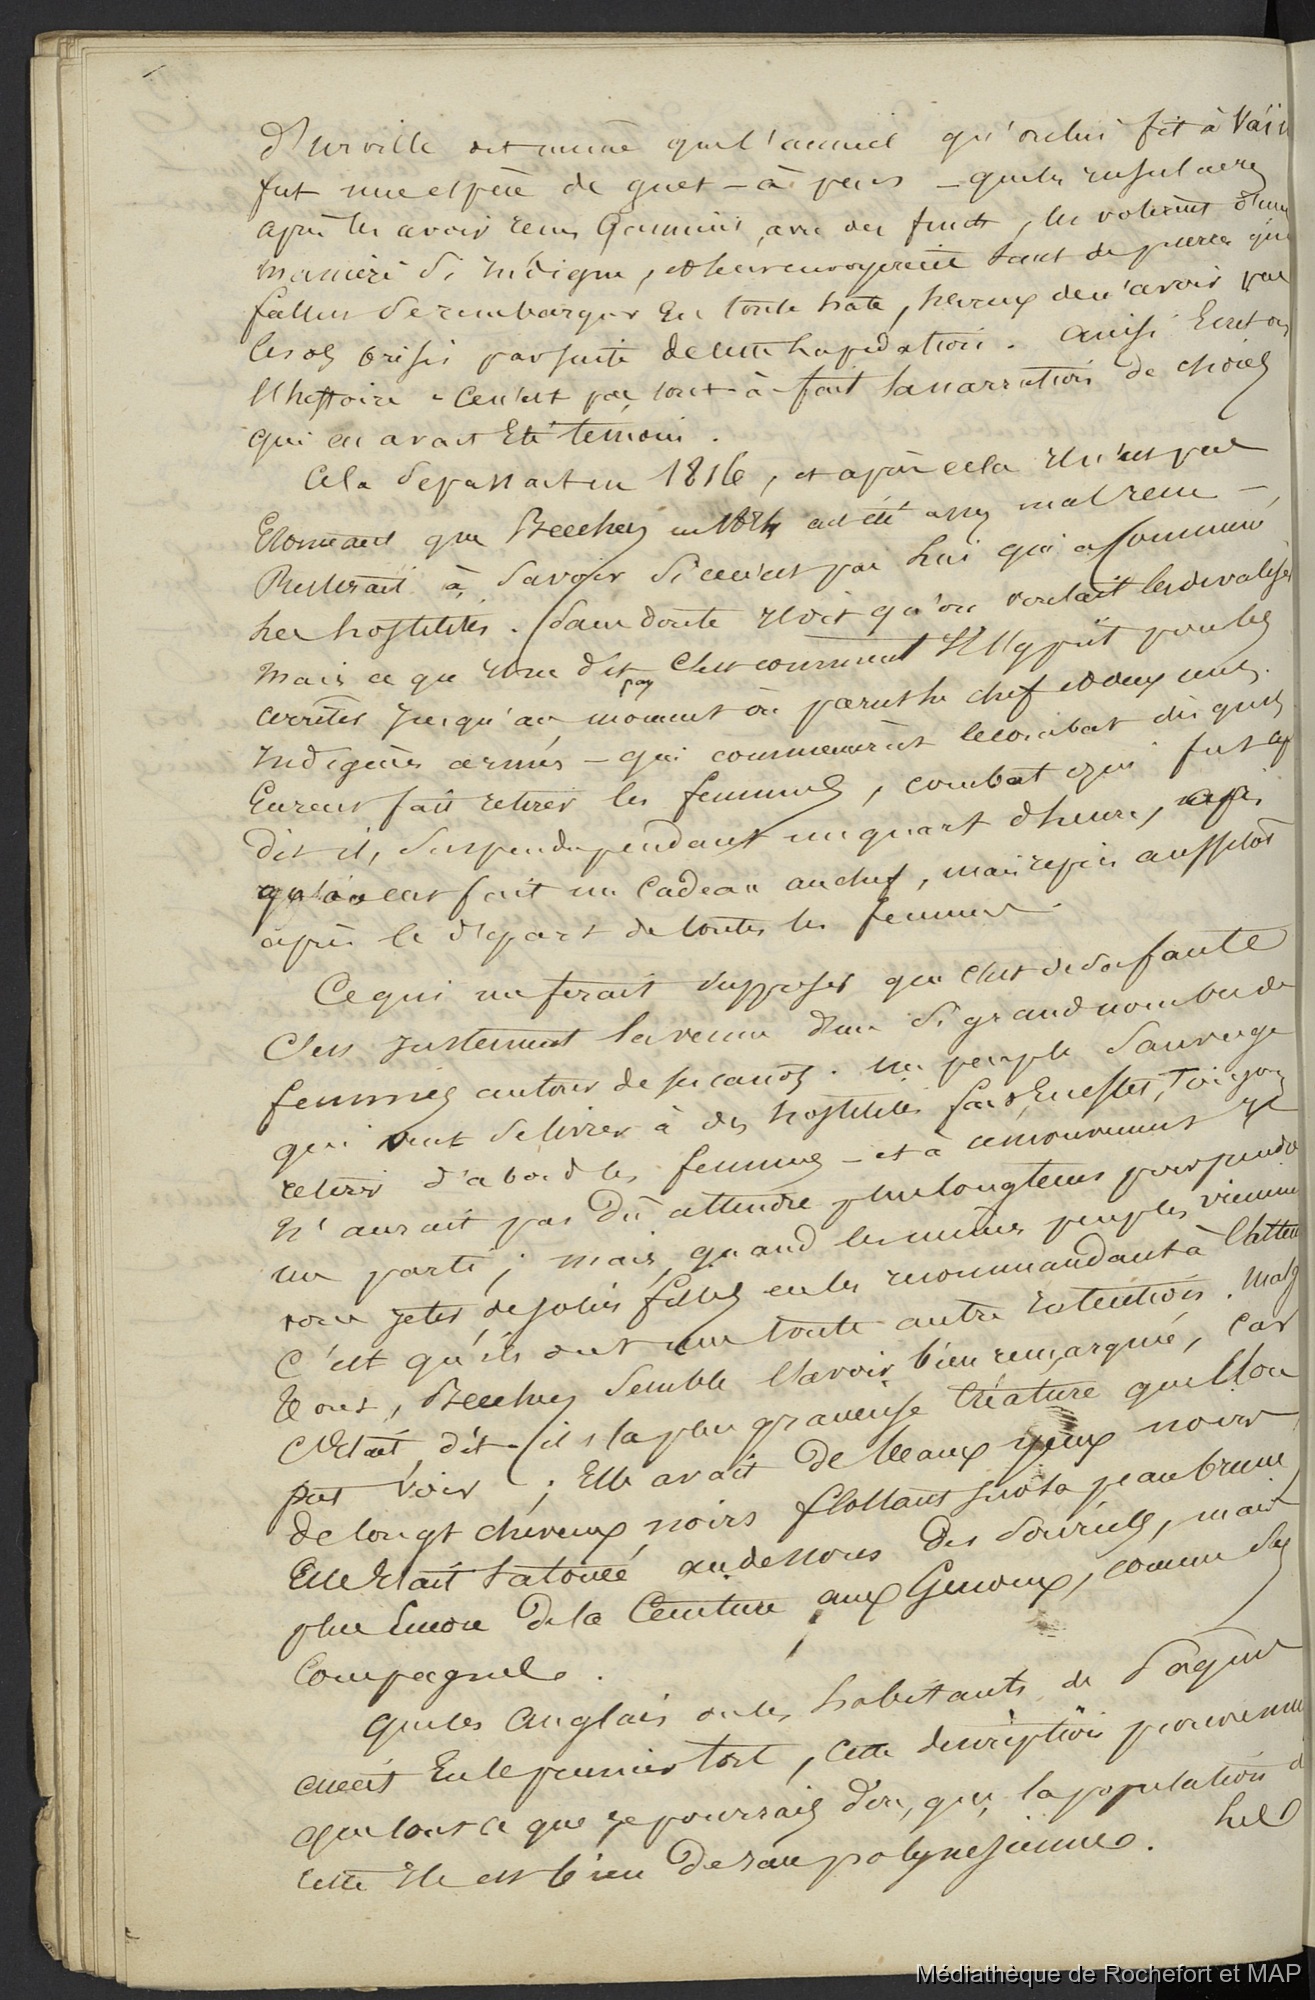 d'Urville dit même que l'accueil qu'on lui fit à Vaï
fut une espèce de guet-à-pens - que les insulaires
après les avoir reçus gaiement, avec des fruits, les volèrent d'une
manière si indigne, et leur envoyèrent tant de pierres qu'il
fallut se rembarquer en toute hâte, heureux de n'avoir pas
les os brisés par suite de cette lapidation. ainsi Ecrit on
l'histoire - ce n'est pas tout-à-fait la narration de choris
qui en avait Eté témoin.
Cela se passait en 1816, et après cela il n'est pas
Etonnant que Beechey en ait été assez mal reçu -
Resterait à savoir si ce n'est pas lui qui a commencé
les hostilités. Sans doute il dit qu'on voulait les dévaliser
mais ce qu'il ne dit pas c'est comment il s'y prit pour les
arrêter jusqu'au moment où parut le chef et deux
Indigènes armés - qui commencèrent le combat dès qu'ils
Eurent fait retirer les femmes, combat qui fut
dit il, suspendu pendant un quart d'heure, après
qu'on eut fait un cadeau au chef, mais repris aussitôt
après le départ de toutes les femmes.
Ce qui me ferait supposer que c'est de sa faute
C'est justement la venue d'un si grand nombre de
femmes autour de ses canots. Un peuple sauvage
qui veut se livrer à des hostilités
retire d'abord les femmes - et à ce mouvement il
n'aurait pas dû attendre plus longtems pour prendre
un parti; mais, quand les mêmes peuples viennent
vous jeter de jolies filles en les recommandant à l'atten
c'est qu'ils ont une toute autre intention. Malg
tout, Beechey semble l'avoir bien remarqué, car
C'Etait, dit-il, la plus gracieuse Créature que l'on
put voir; Elle avait de beaux yeux noirs
de longs cheveux noirs flottant sur sa peau brune
Elle Etait tatouée au dessous des sourcils, mais
plus Encore de la Ceinture aux Genoux, comme ses
Compagnes.
Que les Anglais ou les habitants de Pâques
aient Eu le premier tort, cette description prouve
que tout ce que je pourrais dire, que la population d
cette Ile est bien de race polynésienne.
Médiathèque de Rochefort et MAP